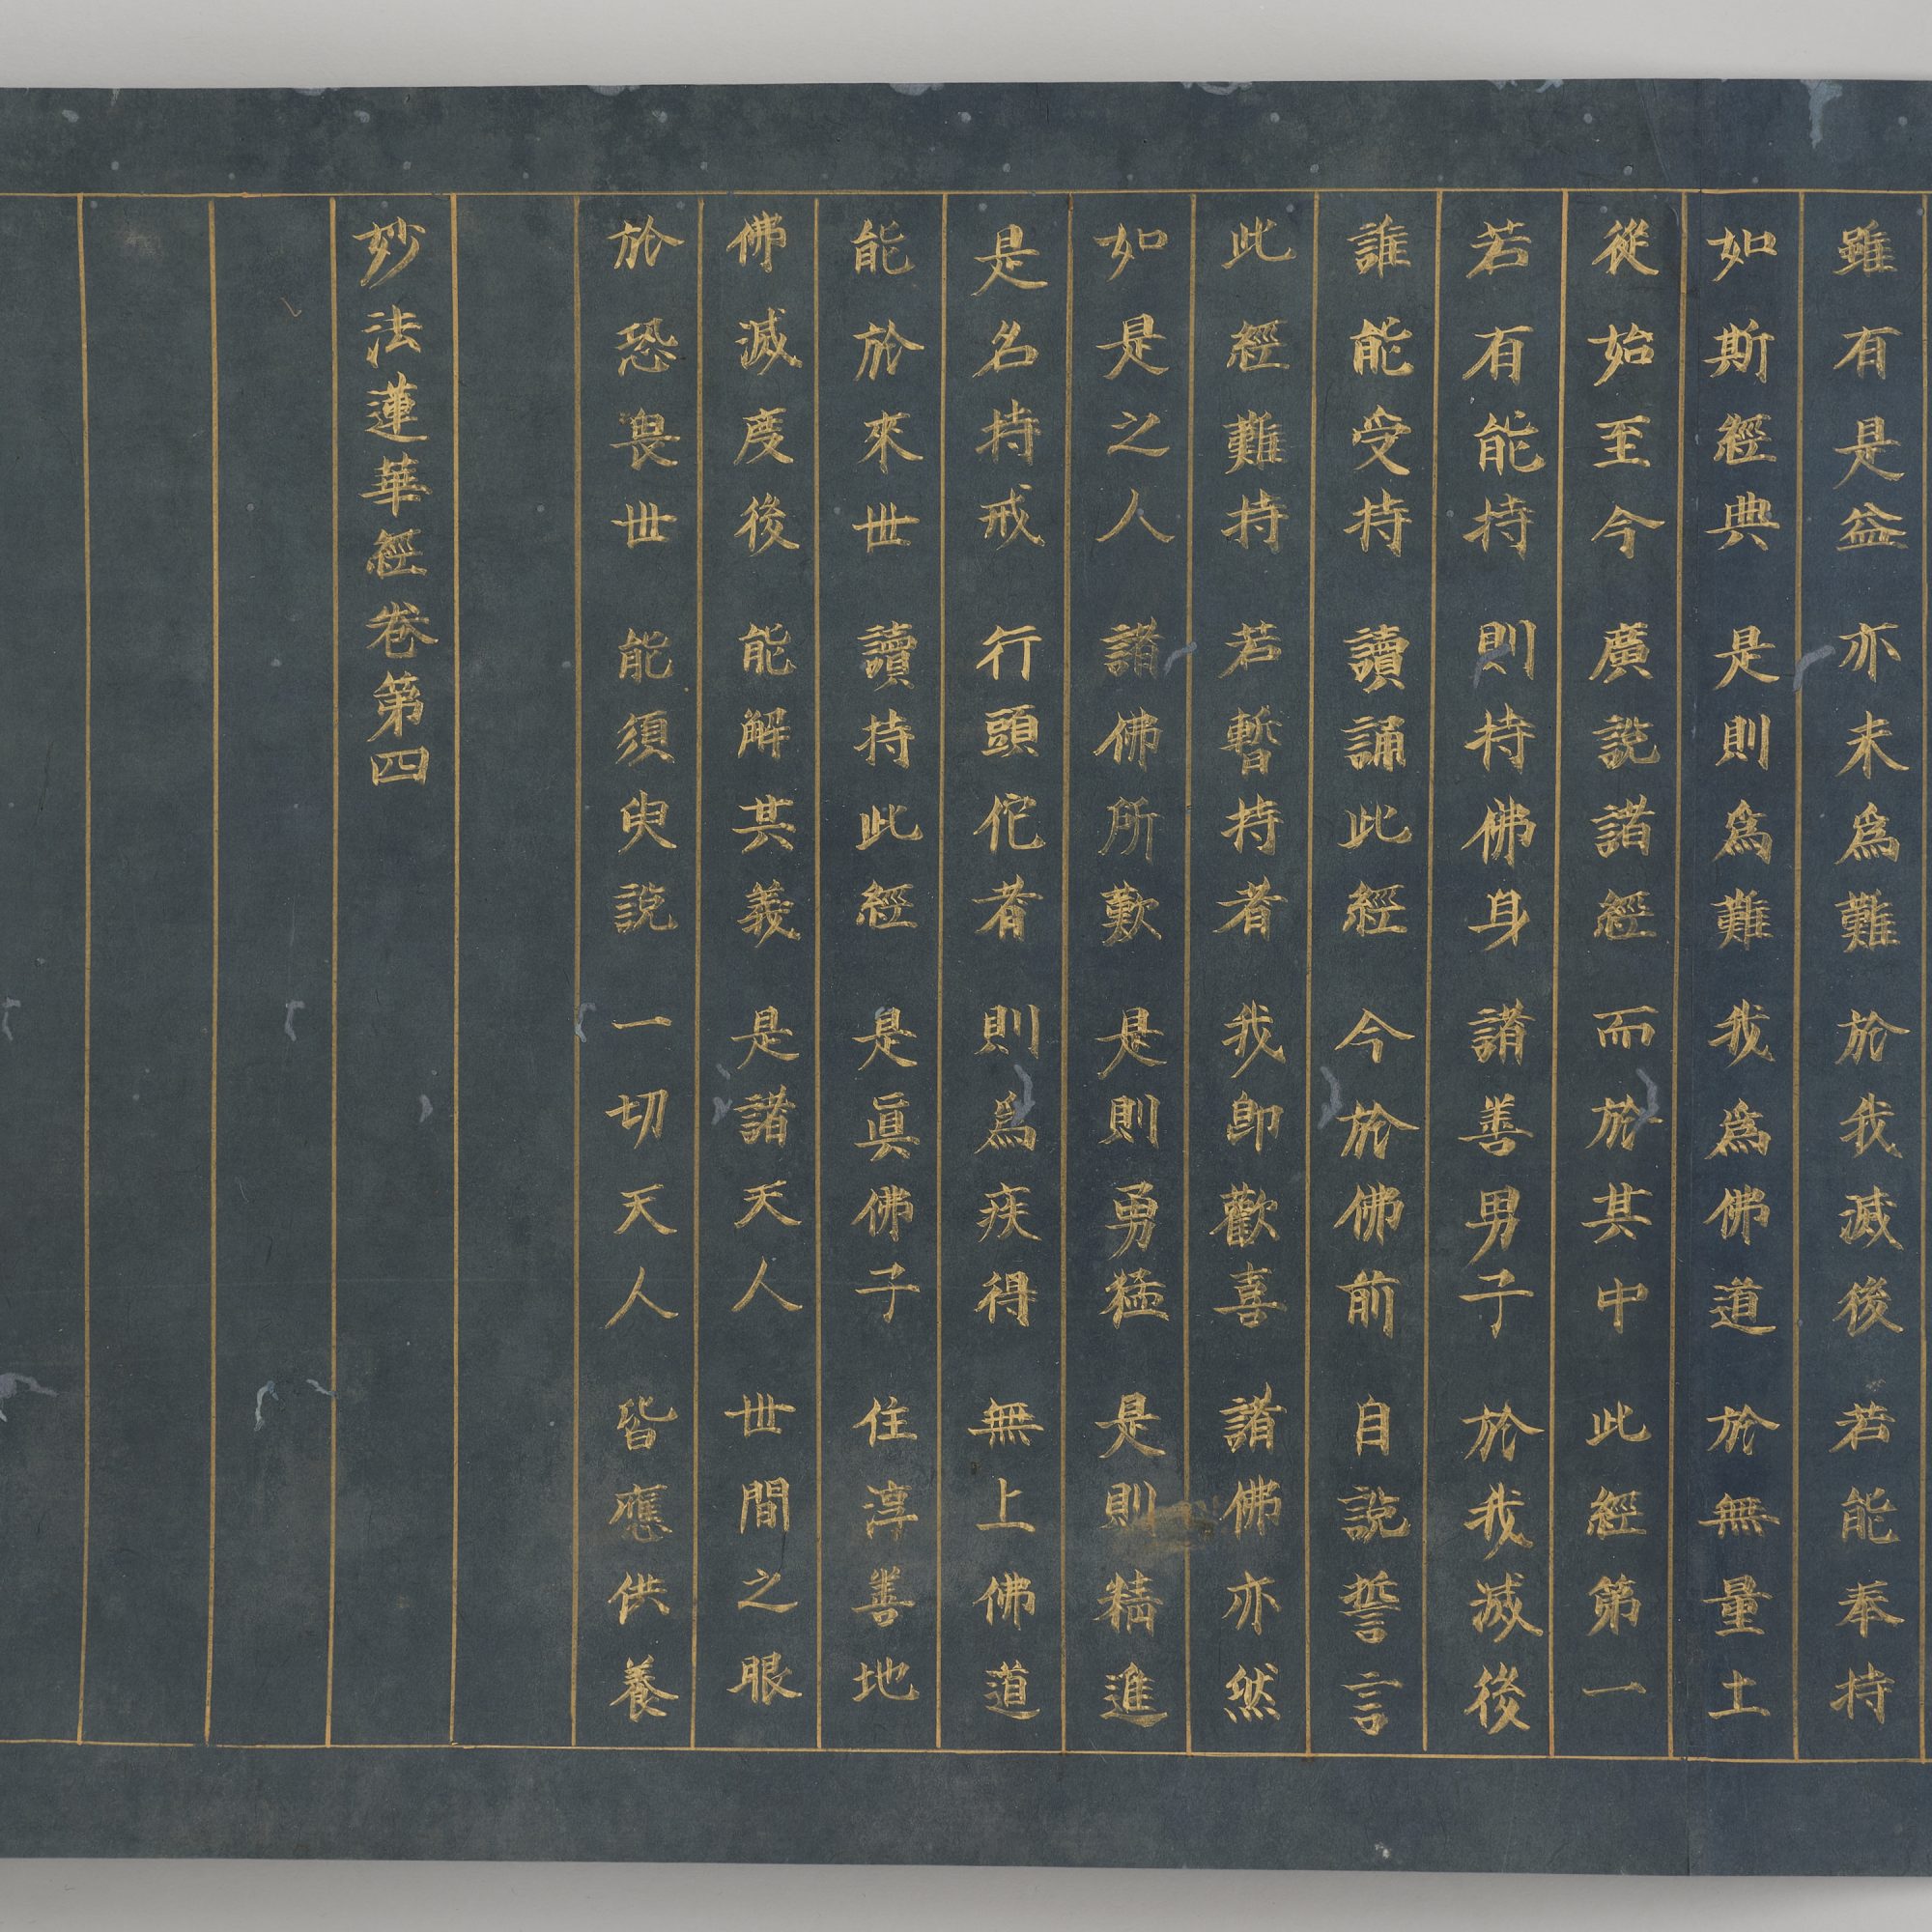 雖有是益 亦未為難 於我滅後 若能奉持
如斯經典 是則為難 我為佛道 於無量土
從始至今 廣說諸經 而於其中 此經第一
若有能持 則持佛身 諸善男子 於我滅後
誰能受持 讀誦此經 今於佛前 自說誓言
此經難持 若暫持者 我即歡喜 諸佛亦然
如是之人 諸佛所歎 是則勇猛 是則精進
是名持戒 行頭佗者 則為疾得 無上佛道
能於來世 讀持此經 是真佛子 住淳善地
佛滅度後 能解其義 是諸天人 世間之眼
於恐畏世 能須臾說 一切天人 皆應供養
妙法蓮華經卷第四